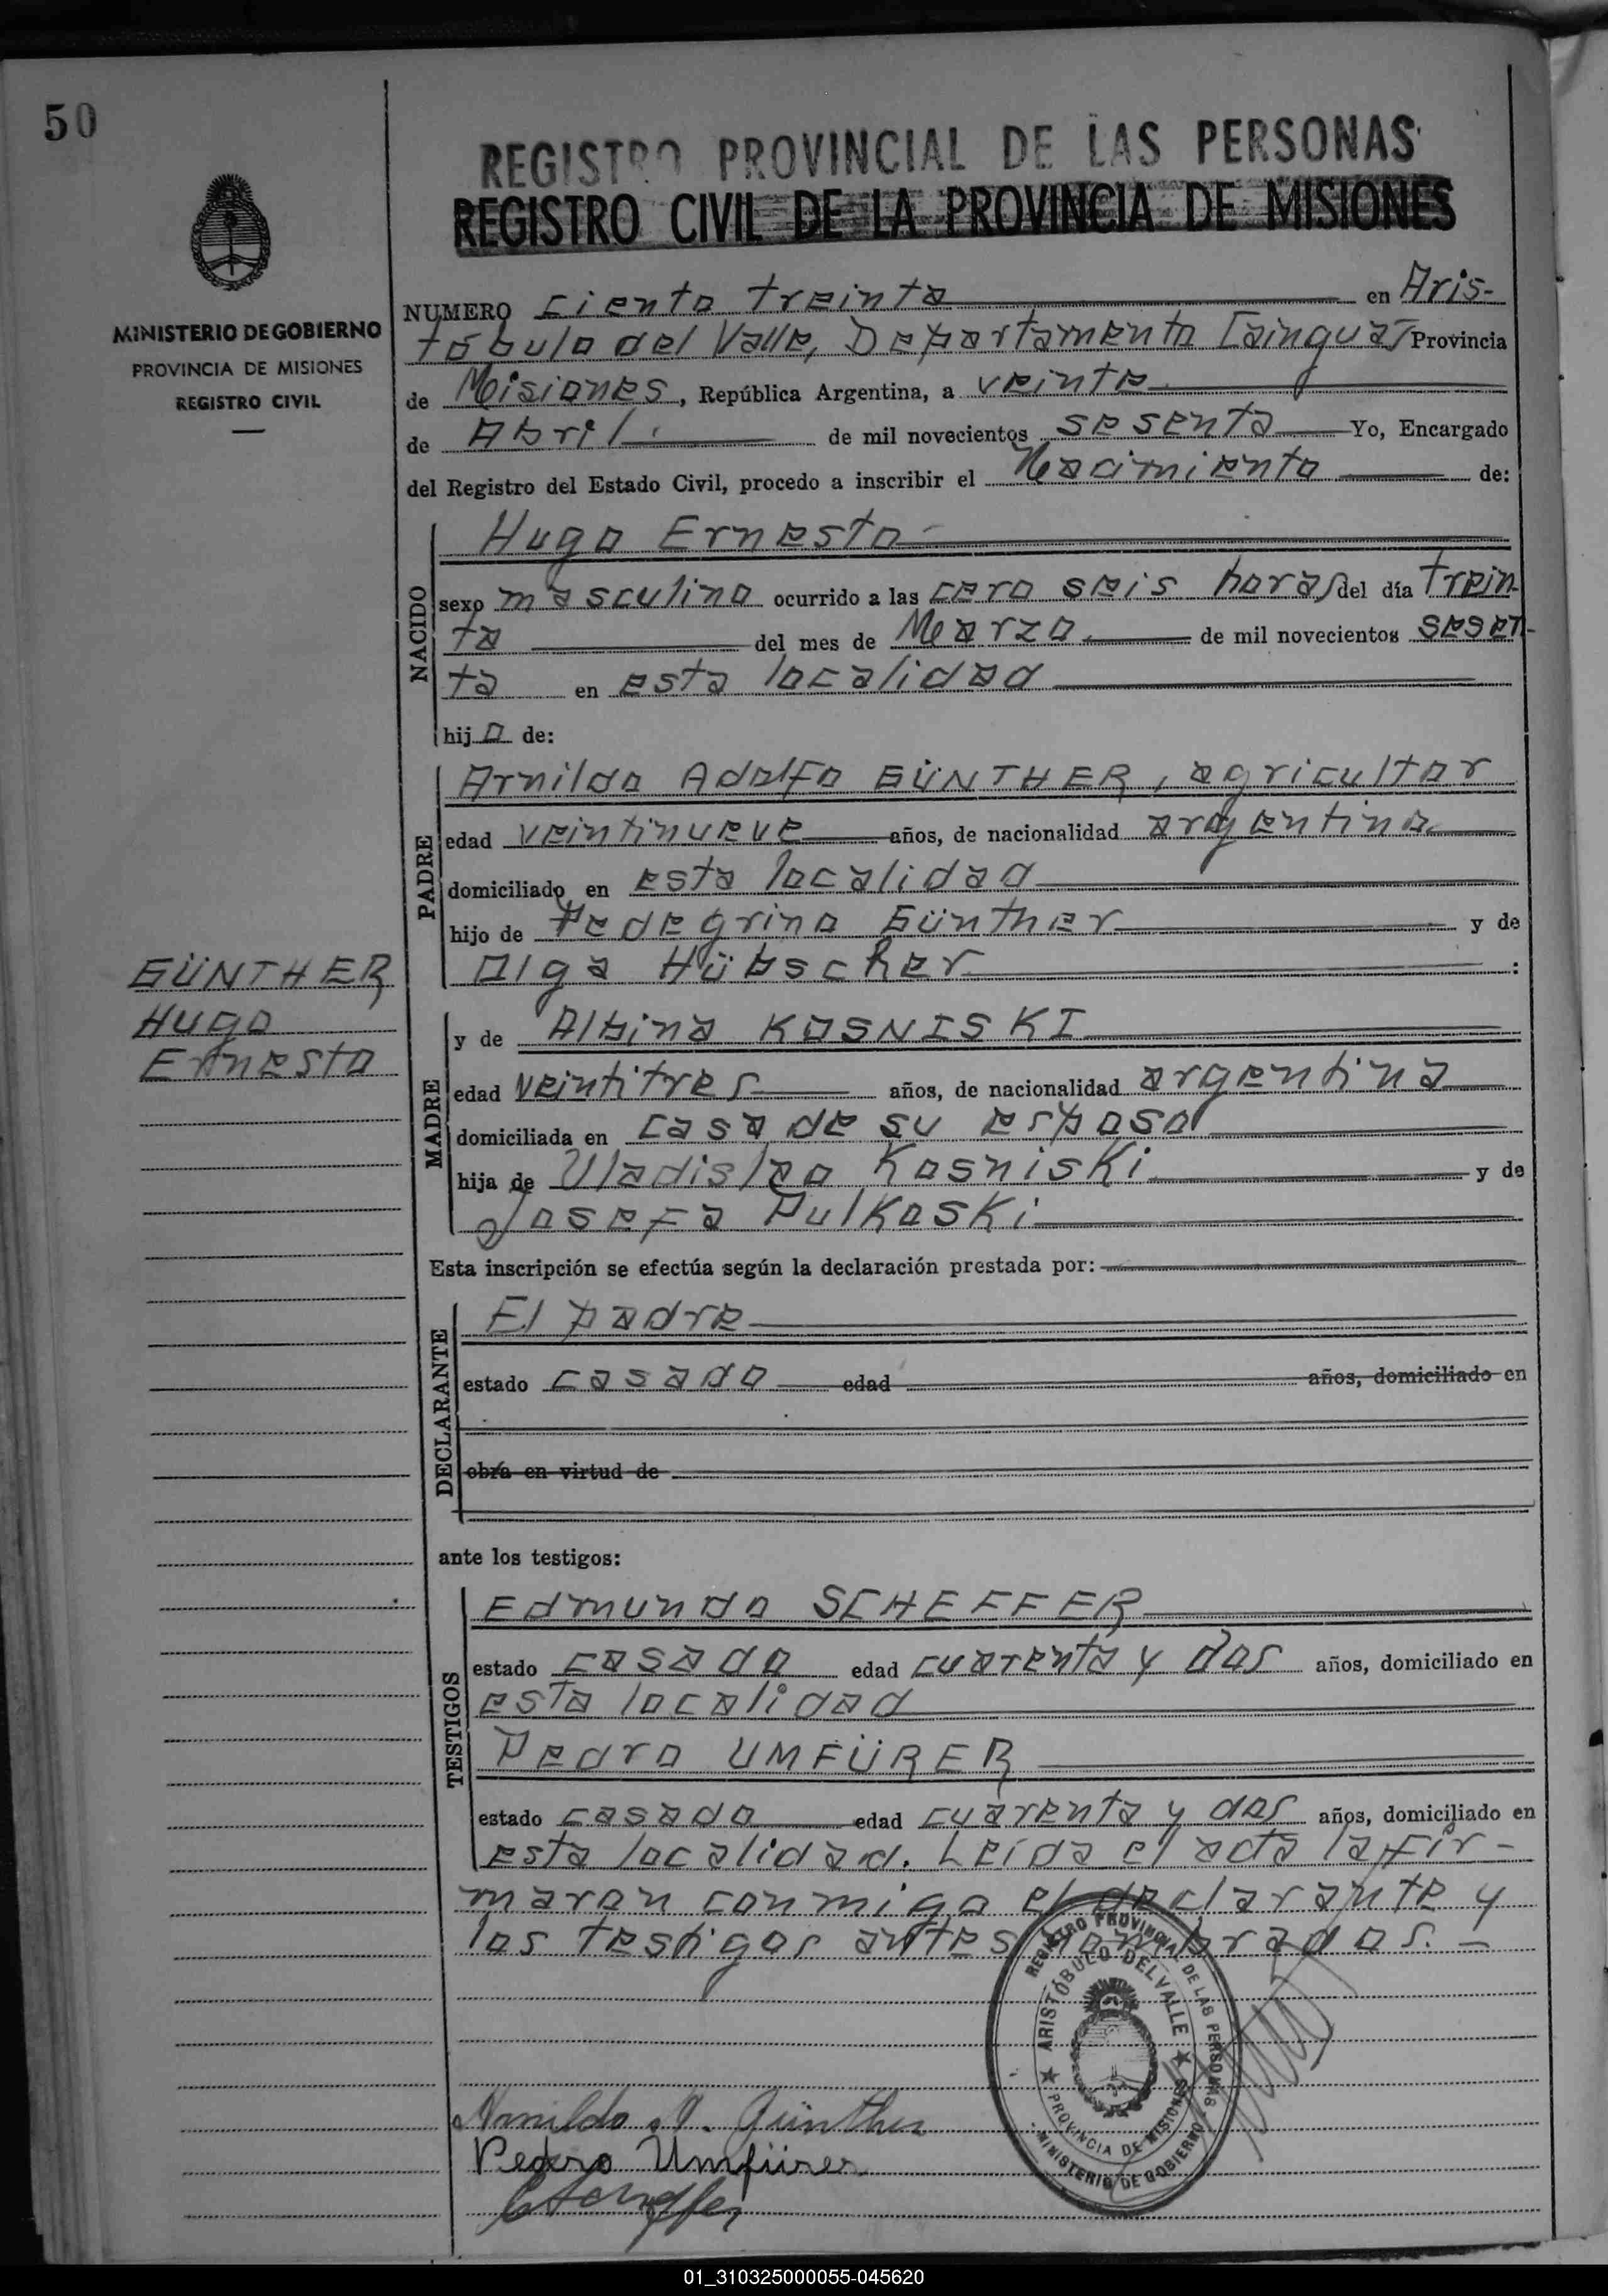 50
REGISTRO PROVINCIAL DE LAS PERSONAS
REGISTRO CIVIL DE LA PROVINCIA DE MISIONES
MINISTERIO DE GOBIERNO
PROVINCIA DE MISIONES
REGISTRO CIVIL
NUMERO Ciento treinta en Aris-
tóbulo del Valle, Departamento Cainguás Provincia
de Misiones, República Argentina, a veinte
de Abril de mil novecientos sesenta Yo, Encargado
del Registro del Estado Civil, procedo a inscribir el Nacimiento de:
NACIDO
Hugo Ernesto
sexo masculino ocurrido a las cero seis horas del día trein-
ta del mes de Marzo de mil novecientos sesen-
ta en esta localidad
hijo de:
PADRE
Arnildo Adolfo GÜNTHER, agricultor
edad veintinueve años, de nacionalidad argentina
domiciliado en esta localidad
hijo de Pedegrino Günther y de
Olga Hübscher :
GÜNTHER
Hugo
Ernesto
MADRE
y de Albina KOSNISKI
edad veintitres años, de nacionalidad argentina
domiciliada en casa de su esposo
hija de Vladislao Kosniski y de
Josefa Pulkoski
Esta inscripción se efectúa según la declaración prestada por:
DECLARANTE
El padre
estado casado edad años, domiciliado en
obra en virtud de
ante los testigos:
TESTIGOS
Edmundo SCHEFFER
estado casado edad cuarenta y dos años, domiciliado en
esta localidad
Pedro UMFÜRER
estado casado edad cuarenta y dos años, domiciliado en
esta localidad. Leída el acta la fir-
maron conmigo el declarante y
los testigos antes nombrados. -
REGISTRO PROVINCIAL DE LAS PERSONAS
ARISTÓBULO DEL VALLE
PROVINCIA DE MISIONES
MINISTERIO DE GOBIERNO
Arnildo A. Günther
Pedro Umfürer
01_310325000055-045620